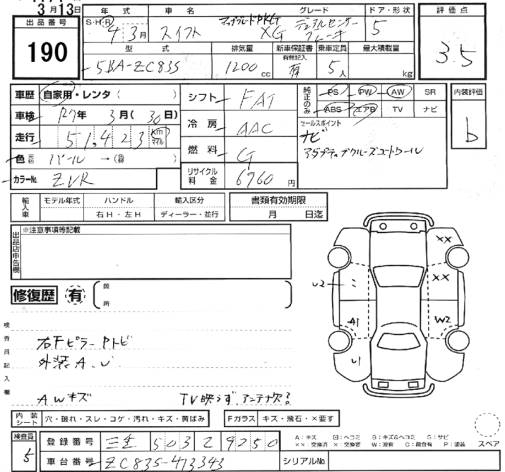 3月13日
出品番号
190
年式 車名 グレード ドア・形状 評価点
S・H・R 4年3月 スイフト XG 5 3.5
型式 排気量 新車保証書 乗車定員 最大積載量
有無記入
5BA-ZC83S 1200cc 有 5人 kg
車歴 自家用・レンタ( )
車検 R7年 3月(30日)
走行 51,423 km
色 パール→( )
カラーNo. ZVR
シフト FAT
冷房 AAC
燃料 G
リサイクル料金 6760円
純正のみ PS PW AW SR
ABS エアB TV ナビ
セールスポイント
ナビ
アダプティブクルーズコントロール
内装評価
b
輸入車 モデル年式 ハンドル 輸入区分 書類有効期限
右H・左H ディーラー・並行 月 日迄
出品店申告欄 ※注意事項等記載
修復歴 有 箇所
検査員記入欄
右Fピラートビ
外装A.U
A.Wキズ TV映らず アンテナ欠?
U2 A1 U1 ×× ×× W2
内装シート 穴・破れ・スレ・コゲ・汚れ・キズ・黄ばみ Fガラス キズ・飛石・×要す
検査員 5
登録番号 三重 503 ミ 9250
車台番号 ZC83S-413343 シリアルNo.
A：キズ U：ヘコミ W：波有 S：サビ
×× 交換済 × 要交換 C：腐食有 P：塗装
スペア